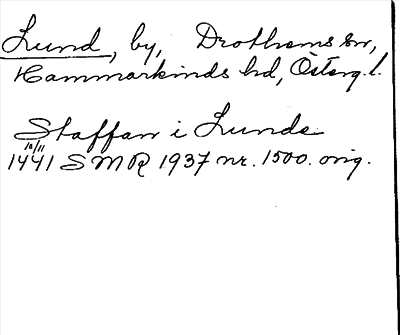 Lund, by, Drothems sn,
Hammarkinds hd, Österg. l.
Staffan i Lunde
10/11
1441 SMR 1937 nr. 1500. orig.